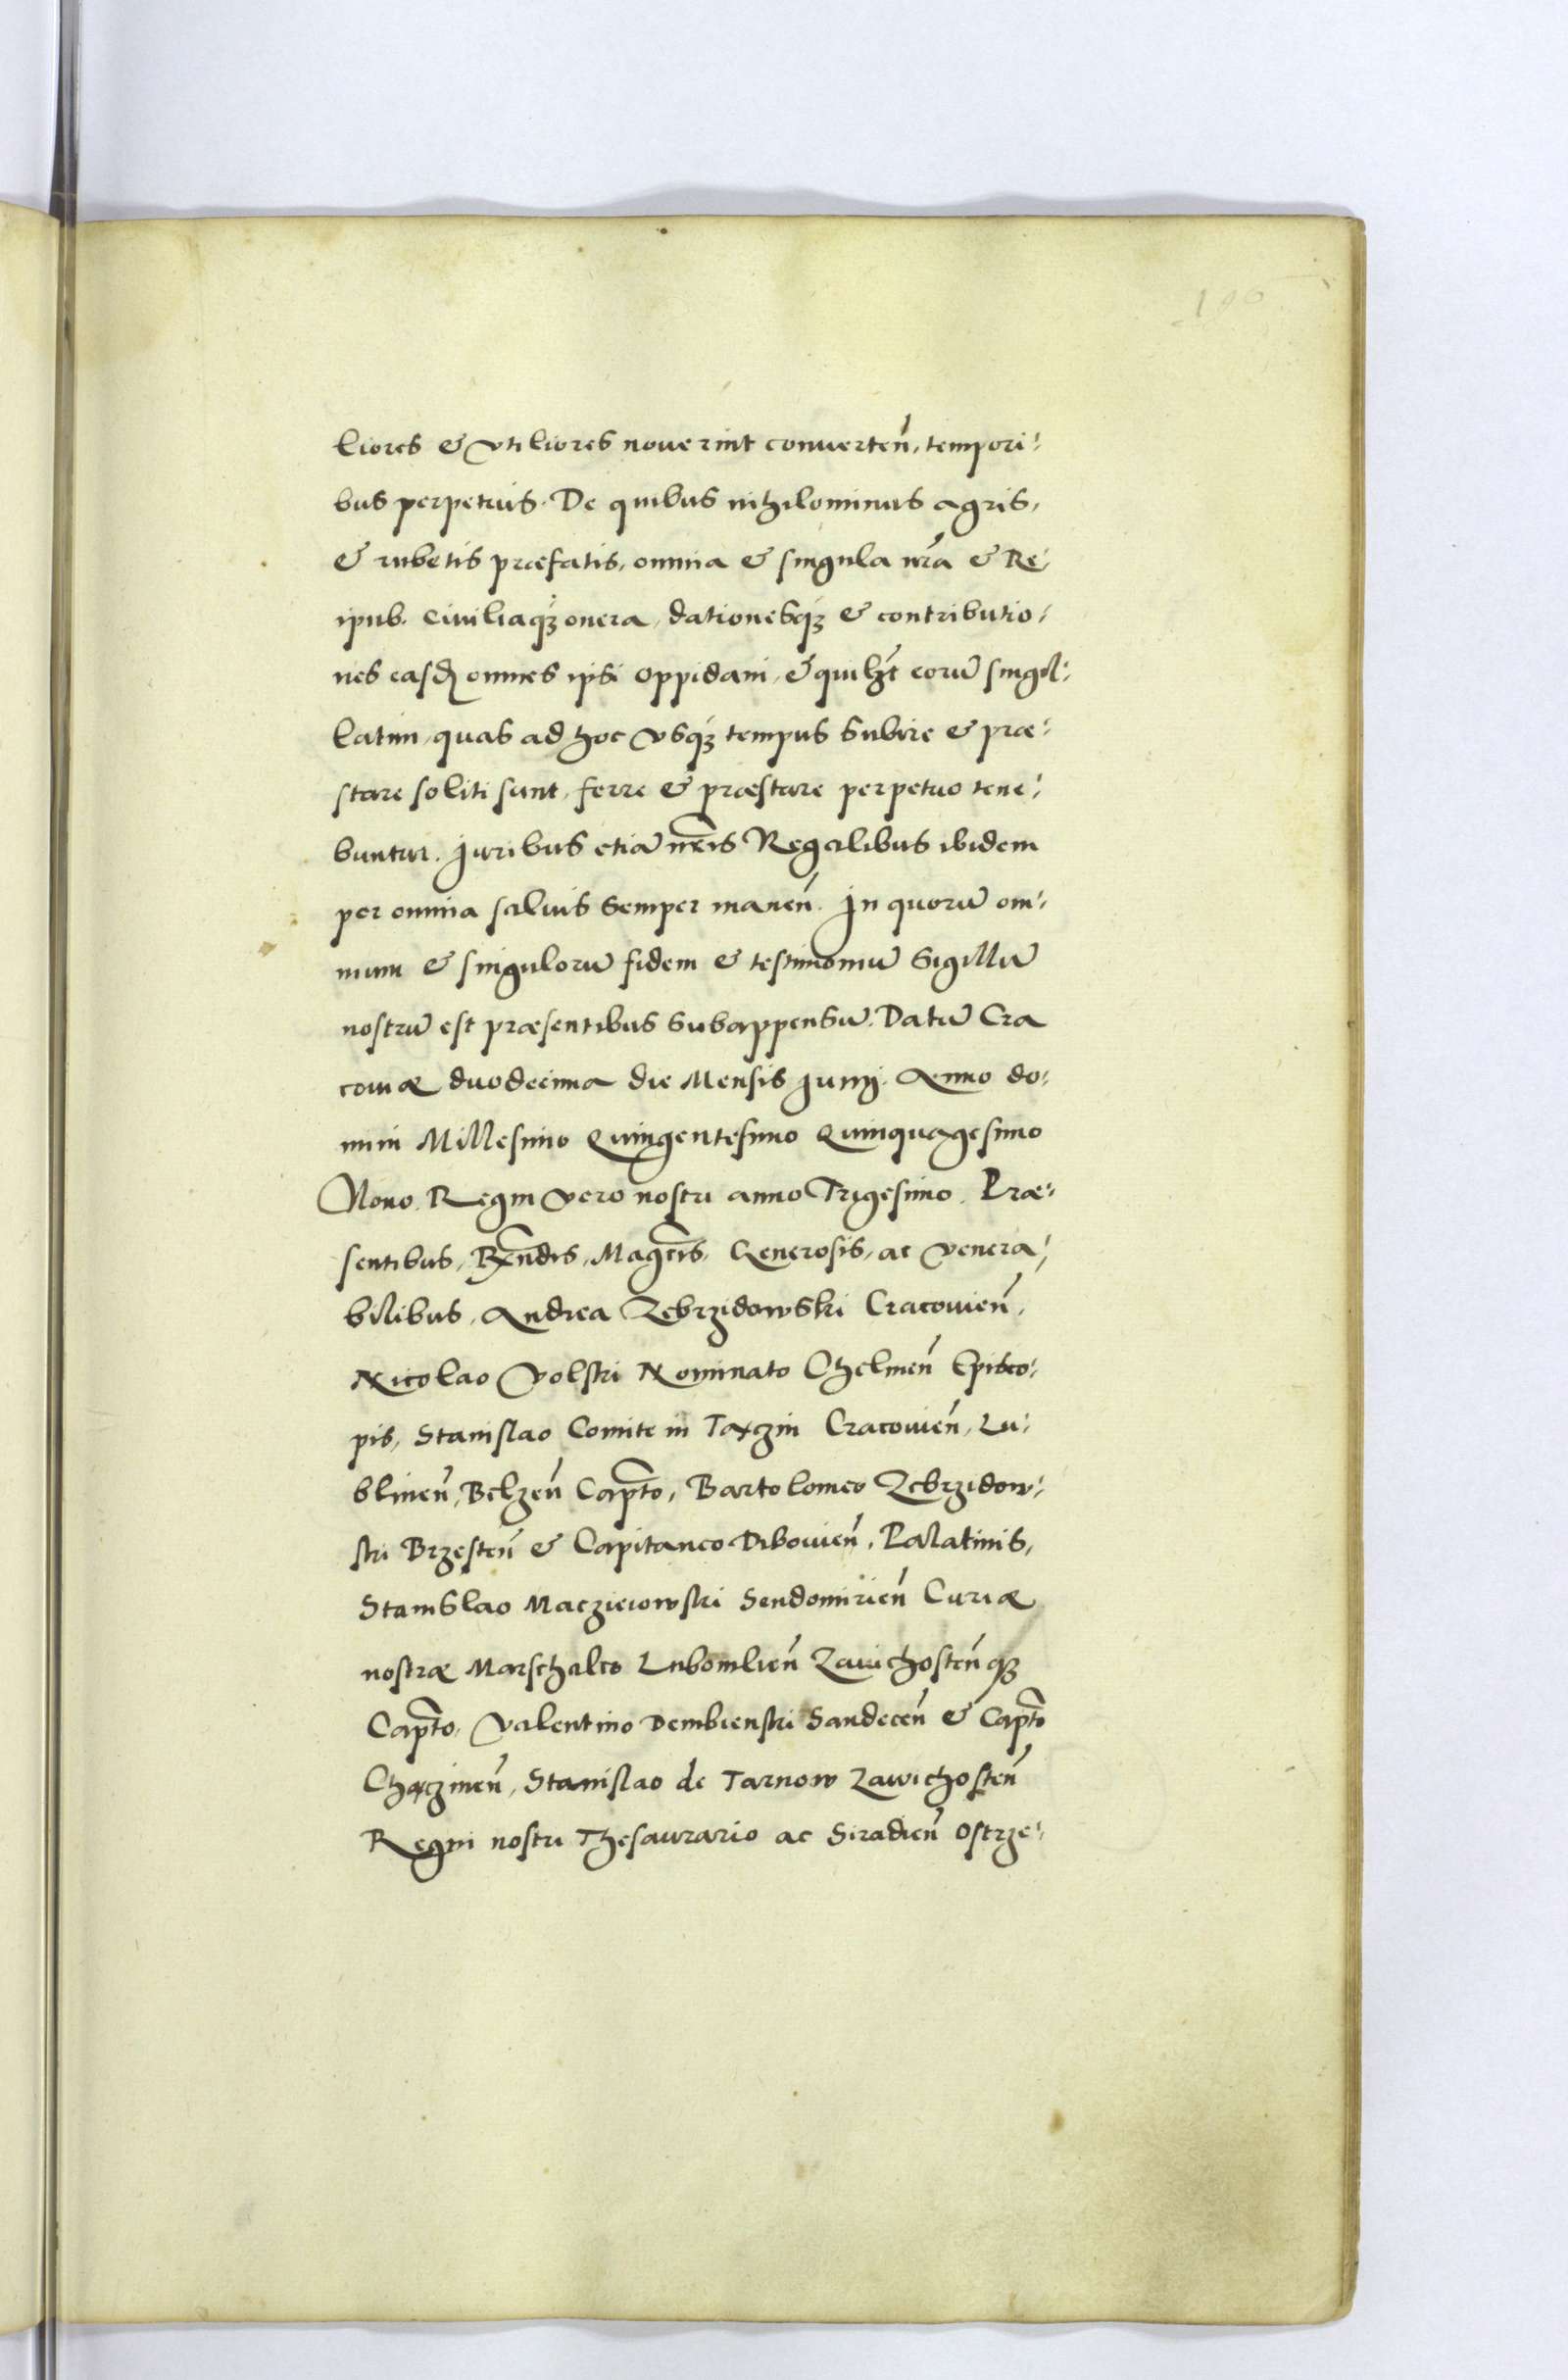 100
liores & vtiliores nouerint conuerteñ, tempori:
bus perpetuis. De quibus nihilominus agris,
& rubetis præfatis, omnia & singula nr̃a & Re:
ipub. Ciuiliaqꝫ onera, dationesqꝫ & contributio:
nes easdꝫ omnes ipsi oppidani, & quilꝫt eorũ singil:
latim, quas ad hoc vsqꝫ tempus subire & præ:
stare soliti sunt, ferre & præstare perpetuo tene:
buntur. Juribus etiã nr̃is Regalibus ibidem
per omnia saluis semper maneñ. In quorũ om:
nium & singulorũ fidem & testimoniũ Sigillũ
nostrũ est præsentibus subappensũ. Datũ Cra
couiæ duodecima die Mensis Junij. Anno do:
mini Millesimo Quingentesimo Quinquagesimo
Nono. Regni vero nostri anno Trigesimo. Præ:
sentibus, Rx̃ndis, Magc̃is, Generosis, ac venera:
bilibus, Andrea Zebrzidowski Cracouieñ,
Nicolao Volski Nominato Chelmeñ Episco:
pis, Stanislao Comite in Tanczin Cracouieñ, Lu:
blineñ, Belzeñ Capt̃o, Bartolomeo Zebrzidow:
ski Brzesteñ & Capitaneo Dibouieñ, Palatinis,
Stanislao Macziewski Sendomirieñ Curiæ
nostræ Marschalco Lubomlieñ Zauichosteñqꝫ
Capt̃o, Valentino Dembienski Sandeceñ & Capt̃o
Chęczineñ, Stanislao de Tarnow Zawichosteñ
Regni nostri Thesaurario ac Siradieñ Ostrze: